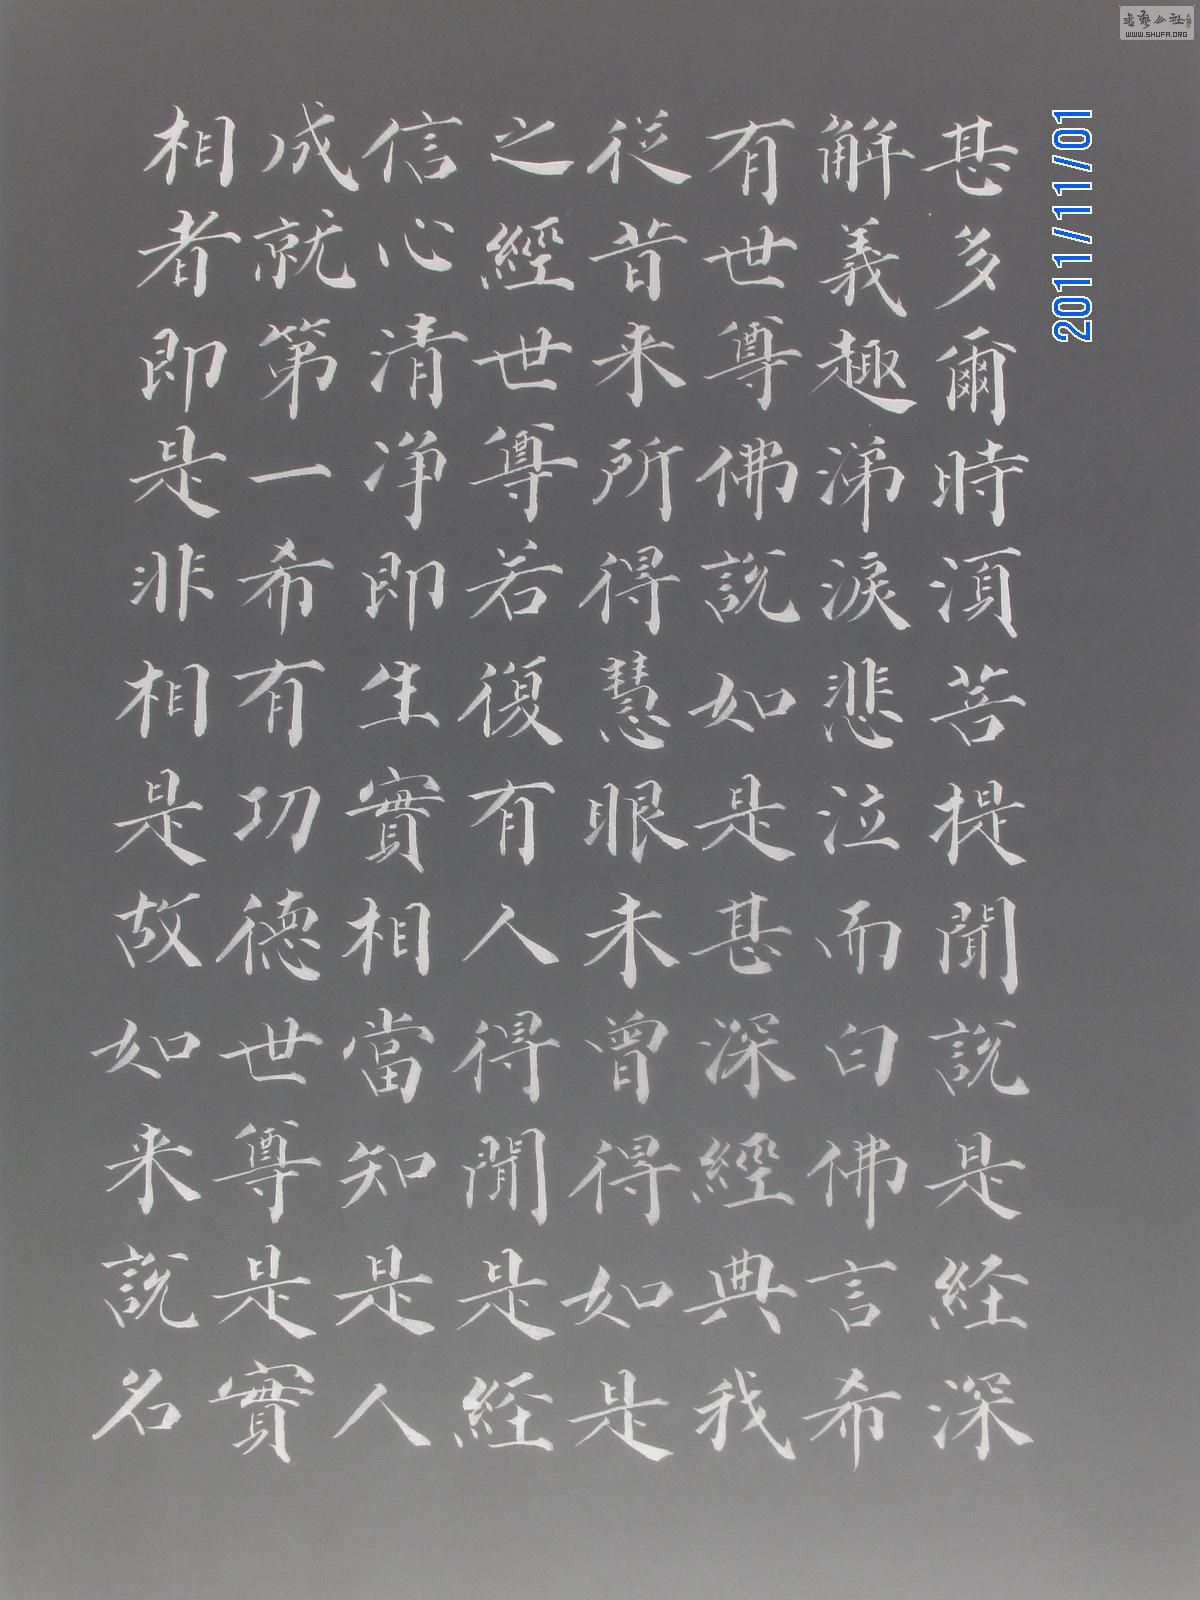 甚多爾時須菩提聞說是経深
解義趣涕淚悲泣而白佛言希
有世尊佛說如是甚深經典我
從昔来所得慧眼未曾得如是
之經世尊若復有人得聞是経
信心清净即生實相當知是人
成就第一希有功德世尊是實
相者即是非相是故如来說名
2011/11/01
WWW.SHUFA.ORG